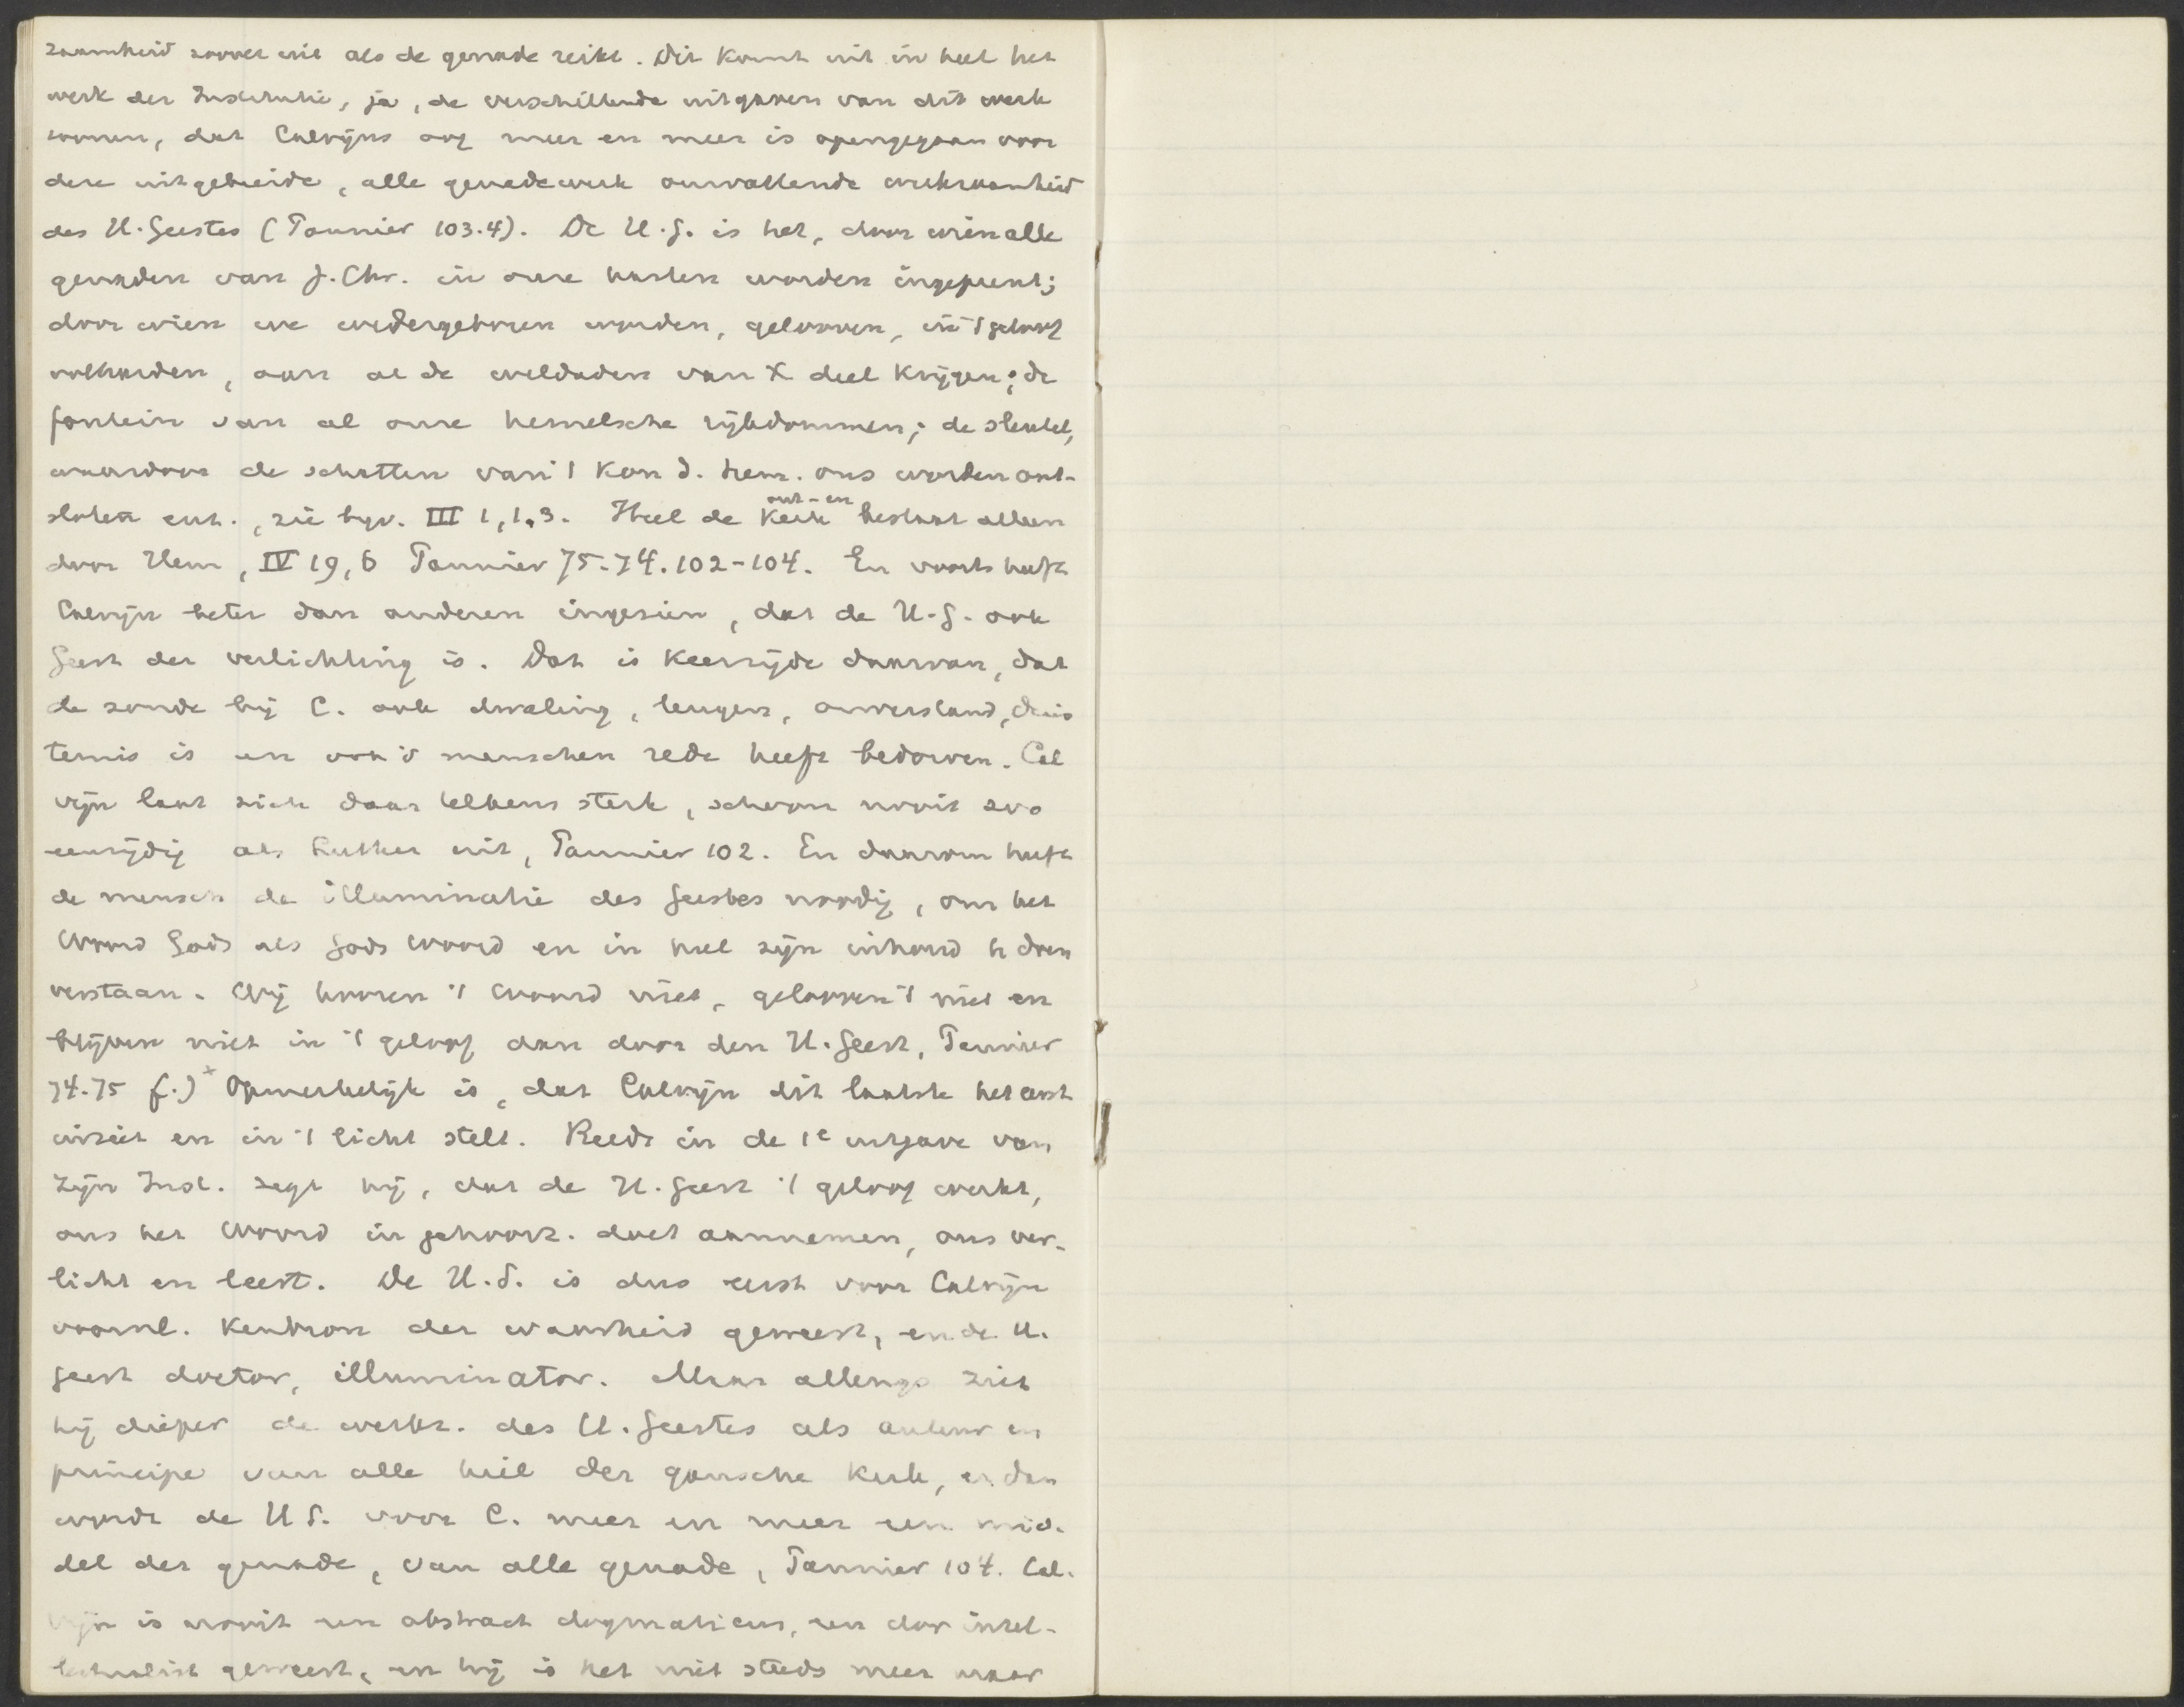 zaamheid zoover uit als de genade reikt. Dit komt uit in heel het
werk der Institutie, ja, de verschillende uitgaven van dit werk
toonen, dat Calvijns oog meer en meer is opengegaan voor
deze uitgebreide, alle genadewerk omvattende werkzaamheid
des H. Geestes (Pannier 103.4). De H.G. is het, door wien alle
genaden van J. Chr. in onze harten worden ingeprent;
door wien we wedergeboren worden, gelooven, in 't geloof
volharden, aan al de weldaden van X deel krijgen; de
fontein van al onze hemelsche rijkdommen; de sleutel,
waardoor de schatten van 't Kon d. hem. ons worden ont-
sloten enz., zie bijv. III 1, 1.3. Heel de Kerk ont- en bestaat alleen
door Hem, IV 19, 6 Pannier 75.74.102-104. En voorts heeft
Calvijn beter dan anderen ingezien, dat de H.G. ook
Geest der verlichting is. Dat is keerzijde daarvan, dat
de zonde bij C. ook dwaling, leugen, onverstand, duis
ternis is en ook 's menschen rede heeft bedorven. Cal
vijn laat zich daar telkens sterk, schoon nooit zoo
eenzijdig als Luther uit, Pannier 102. En daarom heeft
de mensch de illuminatie des Geestes noodig, om het
Woord Gods als Gods Woord en in heel zijn inhoud te doen
verstaan. Wij hooren 't Woord niet, gelooven 't niet en
blijven niet in 't geloof dan door den H. Geest, Pannier
74.75 f.) x Opmerkelijk is, dat Calvijn dit laatste het eerst
inziet en in 't licht stelt. Reeds in de 1e uitgave van
zijn Inst. zegt hij, dat de H. Geest 't geloof werkt,
ons het Woord in gehoorz. doet aannemen, ons ver-
licht en leert. De H.G. is dus eerst voor Calvijn
voornl. kenbron der waarheid geweest, en de H.
Geest doctor, illuminator. Maar allengs ziet
hij dieper de werkz. des H. Geestes als auteur en
principe van alle heil der gansche Kerk, en dan
wordt de H G. voor C. meer en meer een mid-
del der genade, van alle genade, Pannier 104. Cal-
vijn is nooit een abstract dogmaticus, een dor intel-
lectualist geweest, en hij is het niet steeds meer maar